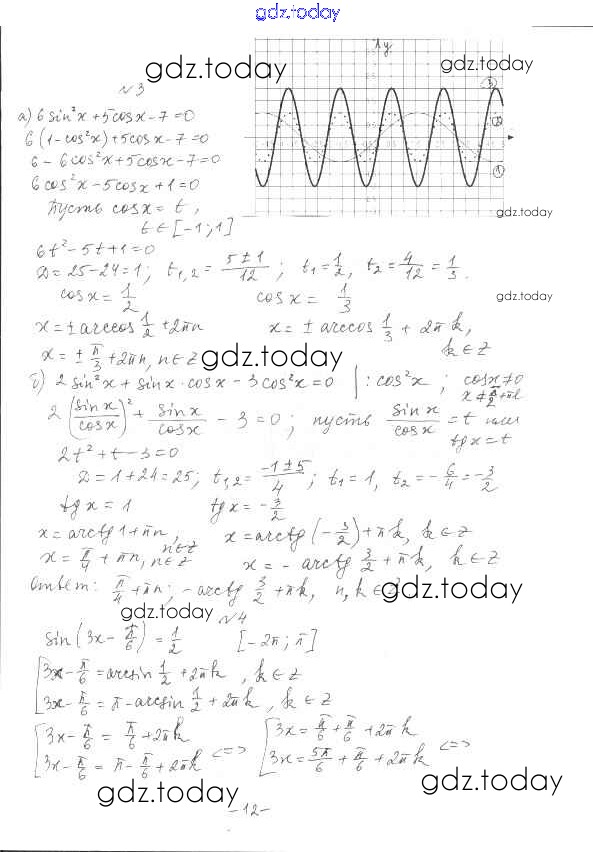 gdz.today
gdz.today
gdz.today
y
№3
③
②
①
а) 6 sin²x + 5cosx - 7 = 0
6(1 - cos²x) + 5cosx - 7 = 0
6 - 6cos²x + 5cosx - 7 = 0
6cos²x - 5cosx + 1 = 0
Пусть cosx = t,
t ∈ [-1; 1]
gdz.today
6t² - 5t + 1 = 0
D = 25 - 24 = 1; t₁,₂ = (5 ± 1)/12; t₁ = 1/2, t₂ = 4/12 = 1/3.
cosx = 1/2 cosx = 1/3
gdz.today
x = ± arccos 1/2 + 2πn x = ± arccos 1/3 + 2πk,
x = ± π/3 + 2πn, n ∈ Z k ∈ Z
gdz.today
б) 2 sin²x + sinx · cosx - 3cos²x = 0 | : cos²x; cosx ≠ 0
x ≠ π/2 + πl
2(sinx/cosx)² + sinx/cosx - 3 = 0; пусть sinx/cosx = t
tgx = t
2t² + t - 3 = 0
D = 1 + 24 = 25; t₁,₂ = (-1 ± 5)/4; t₁ = 1, t₂ = -6/4 = -3/2
tgx = 1 tgx = -3/2
x = arctg1 + πn, n ∈ Z x = arctg(-3/2) + πk, k ∈ Z
x = π/4 + πn, n ∈ Z x = - arctg 3/2 + πk, k ∈ Z
Ответ: π/4 + πn; - arctg 3/2 + πk, n, k ∈ Z
gdz.today
gdz.today
№4
sin(3x - π/6) = 1/2 [-2π; π]
3x - π/6 = arcsin 1/2 + 2πk, k ∈ Z
3x - π/6 = π - arcsin 1/2 + 2πk, k ∈ Z
3x - π/6 = π/6 + 2πk 3x = π/6 + π/6 + 2πk
3x - π/6 = π - π/6 + 2πk <=> 3x = 5π/6 + π/6 + 2πk <=>
gdz.today
gdz.today
-12-